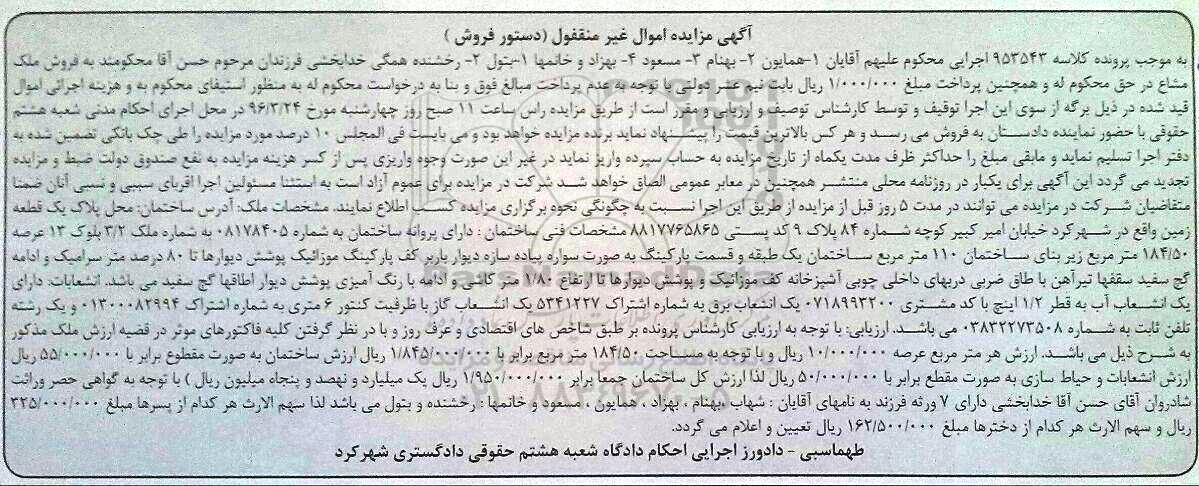 آگهی مزایده اموال غیر منقفول (دستور فروش )
به موجب پرونده کلاسه ۹۵۳۵۴۳ اجرایی محکوم علیهم آقایان ۱-همایون ۲- بهنام ۳- مسعود ۴- بهزاد و خانمها ۱-بتول ۲- رخشنده همگی خدابخشی فرزندان مرحوم حسن آقا محکومند به فروش ملک
مشاع در حق محکوم له و همچنین پرداخت مبلغ ۱/۰۰۰/۰۰۰ ریال بابت نیم عشر دولتی با توجه به عدم پرداخت مبالغ فوق و بنا به درخواست محکوم له به منظور استیفای محکوم به و هزینه اجرائی اموال
قید شده در ذیل برگه از سوی این اجرا توقیف و توسط کارشناس توصیف و ارزیابی و مقرر است از طریق مزایده راس ساعت ۱۱ صبح روز چهارشنبه مورخ ۹۶/۳/۲۴ در محل اجرای احکام مدنی شعبه هشتم
حقوقی با حضور نماینده دادستان به فروش می رسد و هر کس بالاترین قیمت را پیشنهاد نماید برنده مزایده خواهد بود و می بایست فی المجلس ۱۰ درصد مورد مزایده را طی چک بانکی تضمین شده به
دفتر اجرا تسلیم نماید و مابقی مبلغ را حداکثر ظرف مدت یکماه از تاریخ مزایده به حساب سپرده واریز نماید در غیر این صورت وجوه واریزی پس از کسر هزینه مزایده به نفع صندوق دولت ضبط و مزایده
تجدید می گردد این آگهی برای یکبار در روزنامه محلی منتشر همچنین در معابر عمومی الصاق خواهد شد شرکت در مزایده برای عموم آزاد است به استثنا مسئولین اجرا اقربای سببی و نسبی آنان ضمنا
متقاضیان شرکت در مزایده می توانند در مدت ۵ روز قبل از مزایده از طریق این اجرا نسبت به چگونگی نحوه برگزاری مزایده کسب اطلاع نمایند. مشخصات ملک: آدرس ساختمان: محل پلاک یک قطعه
زمین واقع در شهرکرد خیابان امیر کبیر کوچه شماره ۸۴ پلاک ۹ کد پستی ۸۸۱۷۷۶۵۸۶۵ مشخصات فنی ساختمان : دارای پروانه ساختمان به شماره ۰۸۱۷۸۴۰۵ به شماره ملک ۳/۲ بلوک ۱۳ عرصه
۱۸۴/۵۰ متر مربع زیر بنای ساختمان ۱۱۰ متر مربع ساختمان یک طبقه و قسمت پارکینگ به صورت سواره پیاده سازه دیوار باربر کف پارکینگ موزائیک پوشش دیوارها تا ۸۰ درصد متر سرامیک و ادامه
گچ سفید سقفها تیرآهن با طاق ضربی دربهای داخلی چوبی آشپزخانه کف موزائیک و پوشش دیوارها تا ارتفاع ۱/۸۰ متر کاشی و ادامه با رنگ آمیزی پوشش دیوار اطاقها گچ سفید می باشد. انشعابات: دارای
یک انشعاب آب به قطر ۱/۲ اینچ با کد مشتری ۰۷۱۸۹۹۳۲۰۰ یک انشعاب برق به شماره اشتراک ۵۳۴۱۲۲۷ یک انشعاب گاز با ظرفیت کنتور ۶ متری به شماره اشتراک ۰۱۳۰۰۰۸۲۹۹۴ و یک رشته
تلفن ثابت به شماره ۰۳۸۳۲۲۷۳۵۰۸ می باشد. ارزیابی: با توجه به ارزیابی کارشناس پرونده بر طبق شاخص های اقتصادی و عرف روز و با در نظر گرفتن کلیه فاکتورهای موثر در قضیه ارزش ملک مذکور
به شرح ذیل می باشد. ارزش هر متر مربع عرصه ۱۰/۰۰۰/۰۰۰ ریال و با توجه به مساحت ۱۸۴/۵۰ متر مربع برابر با ۱/۸۴۵/۰۰۰/۰۰۰ ریال ارزش ساختمان به صورت مقطوع برابر با ۵۵/۰۰۰/۰۰۰ ریال
ارزش انشعابات و حیاط سازی به صورت مقطع برابر با ۵۰/۰۰۰/۰۰۰ ریال لذا ارزش کل ساختمان جمعا برابر ۱/۹۵۰/۰۰۰/۰۰۰ ریال یک میلیارد و نهصد و پنجاه میلیون ریال ) با توجه به گواهی حصر وراثت
شادروان آقای حسن آقا خدابخشی دارای ۷ ورثه فرزند به نامهای آقایان : شهاب ،بهنام ، بهزاد ، همایون ، مسعود و خانمها : رخشنده و بتول می باشد لذا سهم الارث هر کدام از پسرها مبلغ ۳۲۵/۰۰۰/۰۰۰
ریال و سهم الارث هر کدام از دخترها مبلغ ۱۶۲/۵۰۰/۰۰۰ ریال تعیین و اعلام می گردد.
طهماسبی - دادورز اجرایی احکام دادگاه شعبه هشتم حقوقی دادگستری شهرکرد